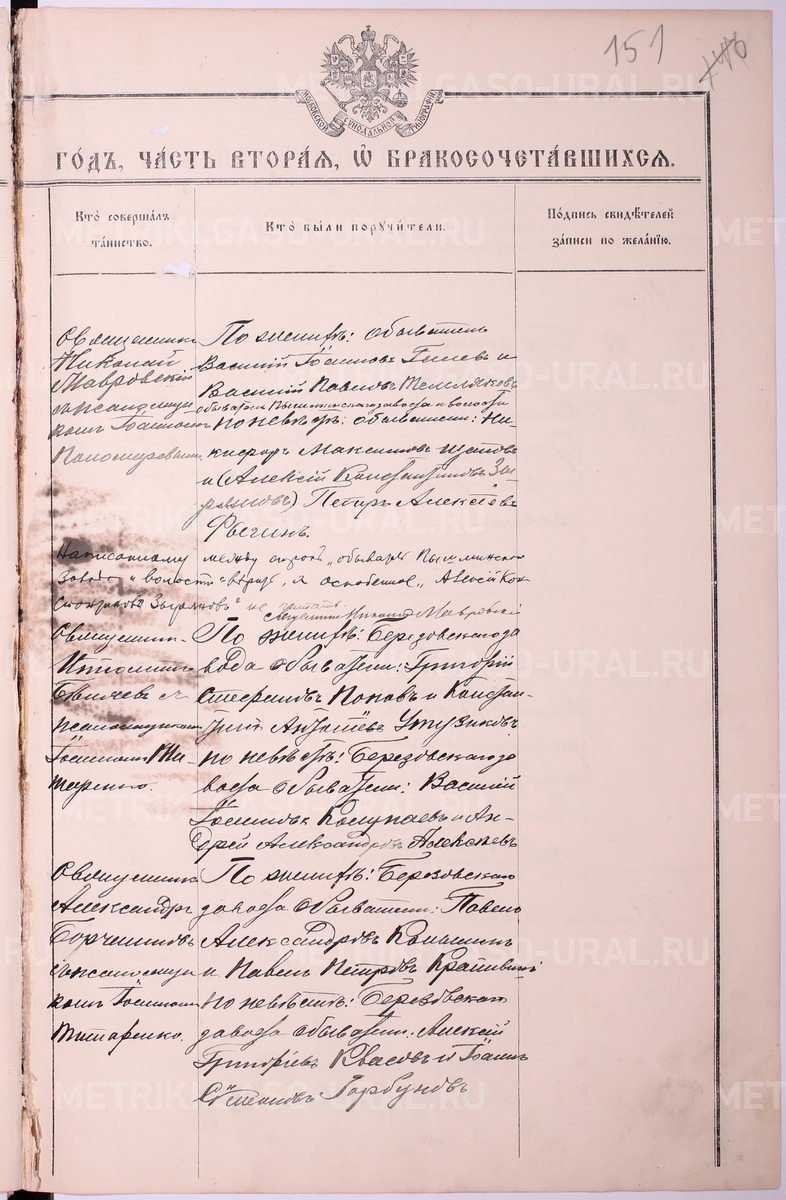 151
МОСКОВСКОЙ СѴНОДАЛЬНОЙ ТИПОГРАФІИ
ГО́ДЪ, ЧА́СТЬ ВТОРА́Я, Ѡ҆ БРАКОСОЧЕТА́ВШИХСЯ.
Кто̀ соверша́лъ
та́инство.
Кто̀ бы́ли порꙋчи́тели.
По́дпись свидѣ́телей
за́писи по жела́нїю.
Священникъ
Николай
Мавровскій
съ псаломщи
комъ Іоанномъ
По женихѣ: обыватель
Василій Іоанновъ Гилевъ и
Василій Павловъ
обыватели Пышминскаго завода и волости
По невѣстѣ: обыватели: Ни-
кифоръ Максимовъ
и (Алексій Константиновъ Зы-
ряновъ) Петръ Алексѣевъ
Написанному между строкъ „обыват Пышминскаго
Завода и волости" вѣрить, а оскобленное „Алексій Кон
стантиновъ Зыряновъ" не читать.
Священникъ Николай Мавровскій
Священникъ
съ
псаломщикомъ
Іоанномъ Ти-
таренко.
По женихѣ: Березовскаго за
вода обыватели: Григорій
Стефановъ Поповъ и Констан-
тинъ
по невѣстѣ: Березовскаго за
вода обыватели: Василій
Іоанновъ Колупаевъ и Ан-
дрей Александровъ Алексѣевъ
Священникъ
Александръ
съ псаломщи
комъ Іоанномъ
Титаренко.
По женихѣ: Березовскаго
завода обыватели: Павелъ
Александровъ Коньшинъ
и Павелъ Петровъ
по невѣстѣ: Березовскаго
завода обыватели: Алексій
Григоріевъ Квасовъ и Іоаннъ
Стефановъ Горбуновъ
METRIKI.GASO-URAL.RU